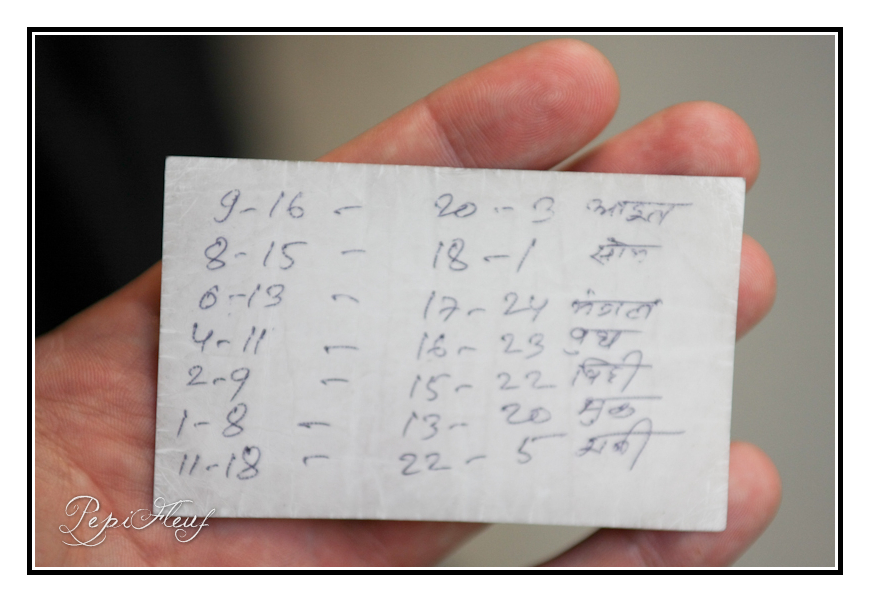 9-16 - 20-3 आइत
8-15 - 18-1 सोम
6-13 - 17-24 मंगल
4-11 - 16-23 बुध
2-9 - 15-22 बिही
1-8 - 13-20 सुक्र
11-18 - 22-5 सनी
PepiFleuf